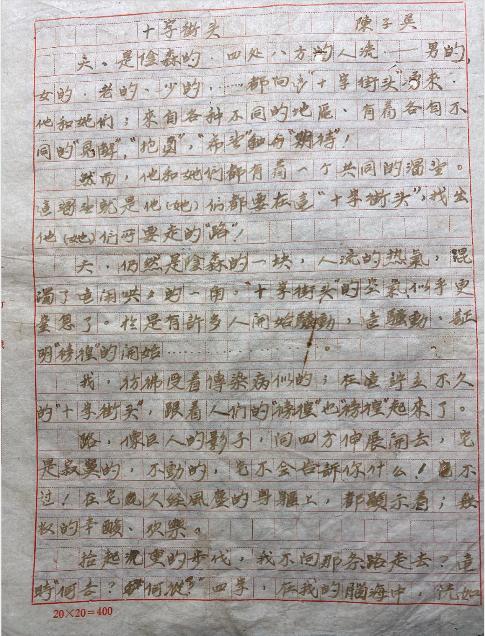 十字街头 陳子吳
天、是陰森的。四处八方的人流——男的,
女的。老的、少的,……都向这"十字街头"湧來.
他和她们;來自各种不同的地區、有着各自不
同的"見解","抱負","希望"和与"期待"!
然而,他和她们都有着一个共同的渴望。
這渴望就是他(她)们都要在這"十字街头",找出
他(她)们所要走的"路"!
天,仍然是陰森的一块,人流的热氣,混
濁了
的一角。"十字街头"的空氣似乎更
窒息了。於是有許多人開始騷動,這騷動、証
明"徬徨"的開始…………………。
我,彷彿受着傳染病似的;在這竚立不久
的"十字街头",跟着人们的"徬徨"也"徬徨"起來了。
路,像巨人的影子,向四方伸展開去,它
是寂寞的,不動的,它不会告訴你什么!只不
过!在它久经風塵的身軀上,都顯示着;無
数的辛酸、欢樂。
拾起沉重的步伐,我不问那条路走去?這
時"何去?何從?"四字,在我的腦海中,恍如
20×20=400